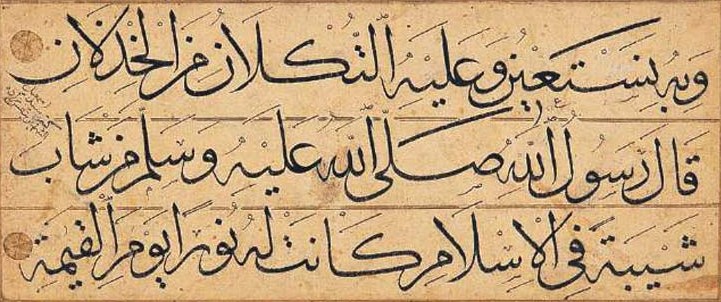 وَبِهِ نَسْتَعِينُ وَعَلَيْهِ التُّكْلَانُ مِنَ الْخِذْلَانِ
قَالَ رَسُولُ اللّٰهِ صَلَّى اللّٰهُ عَلَيْهِ وَسَلَّمَ مَنْ شَابَ
شَيْبَةً فِي الْإِسْلَامِ كَانَتْ لَهُ نُورًا يَوْمَ الْقِيٰمَةِ